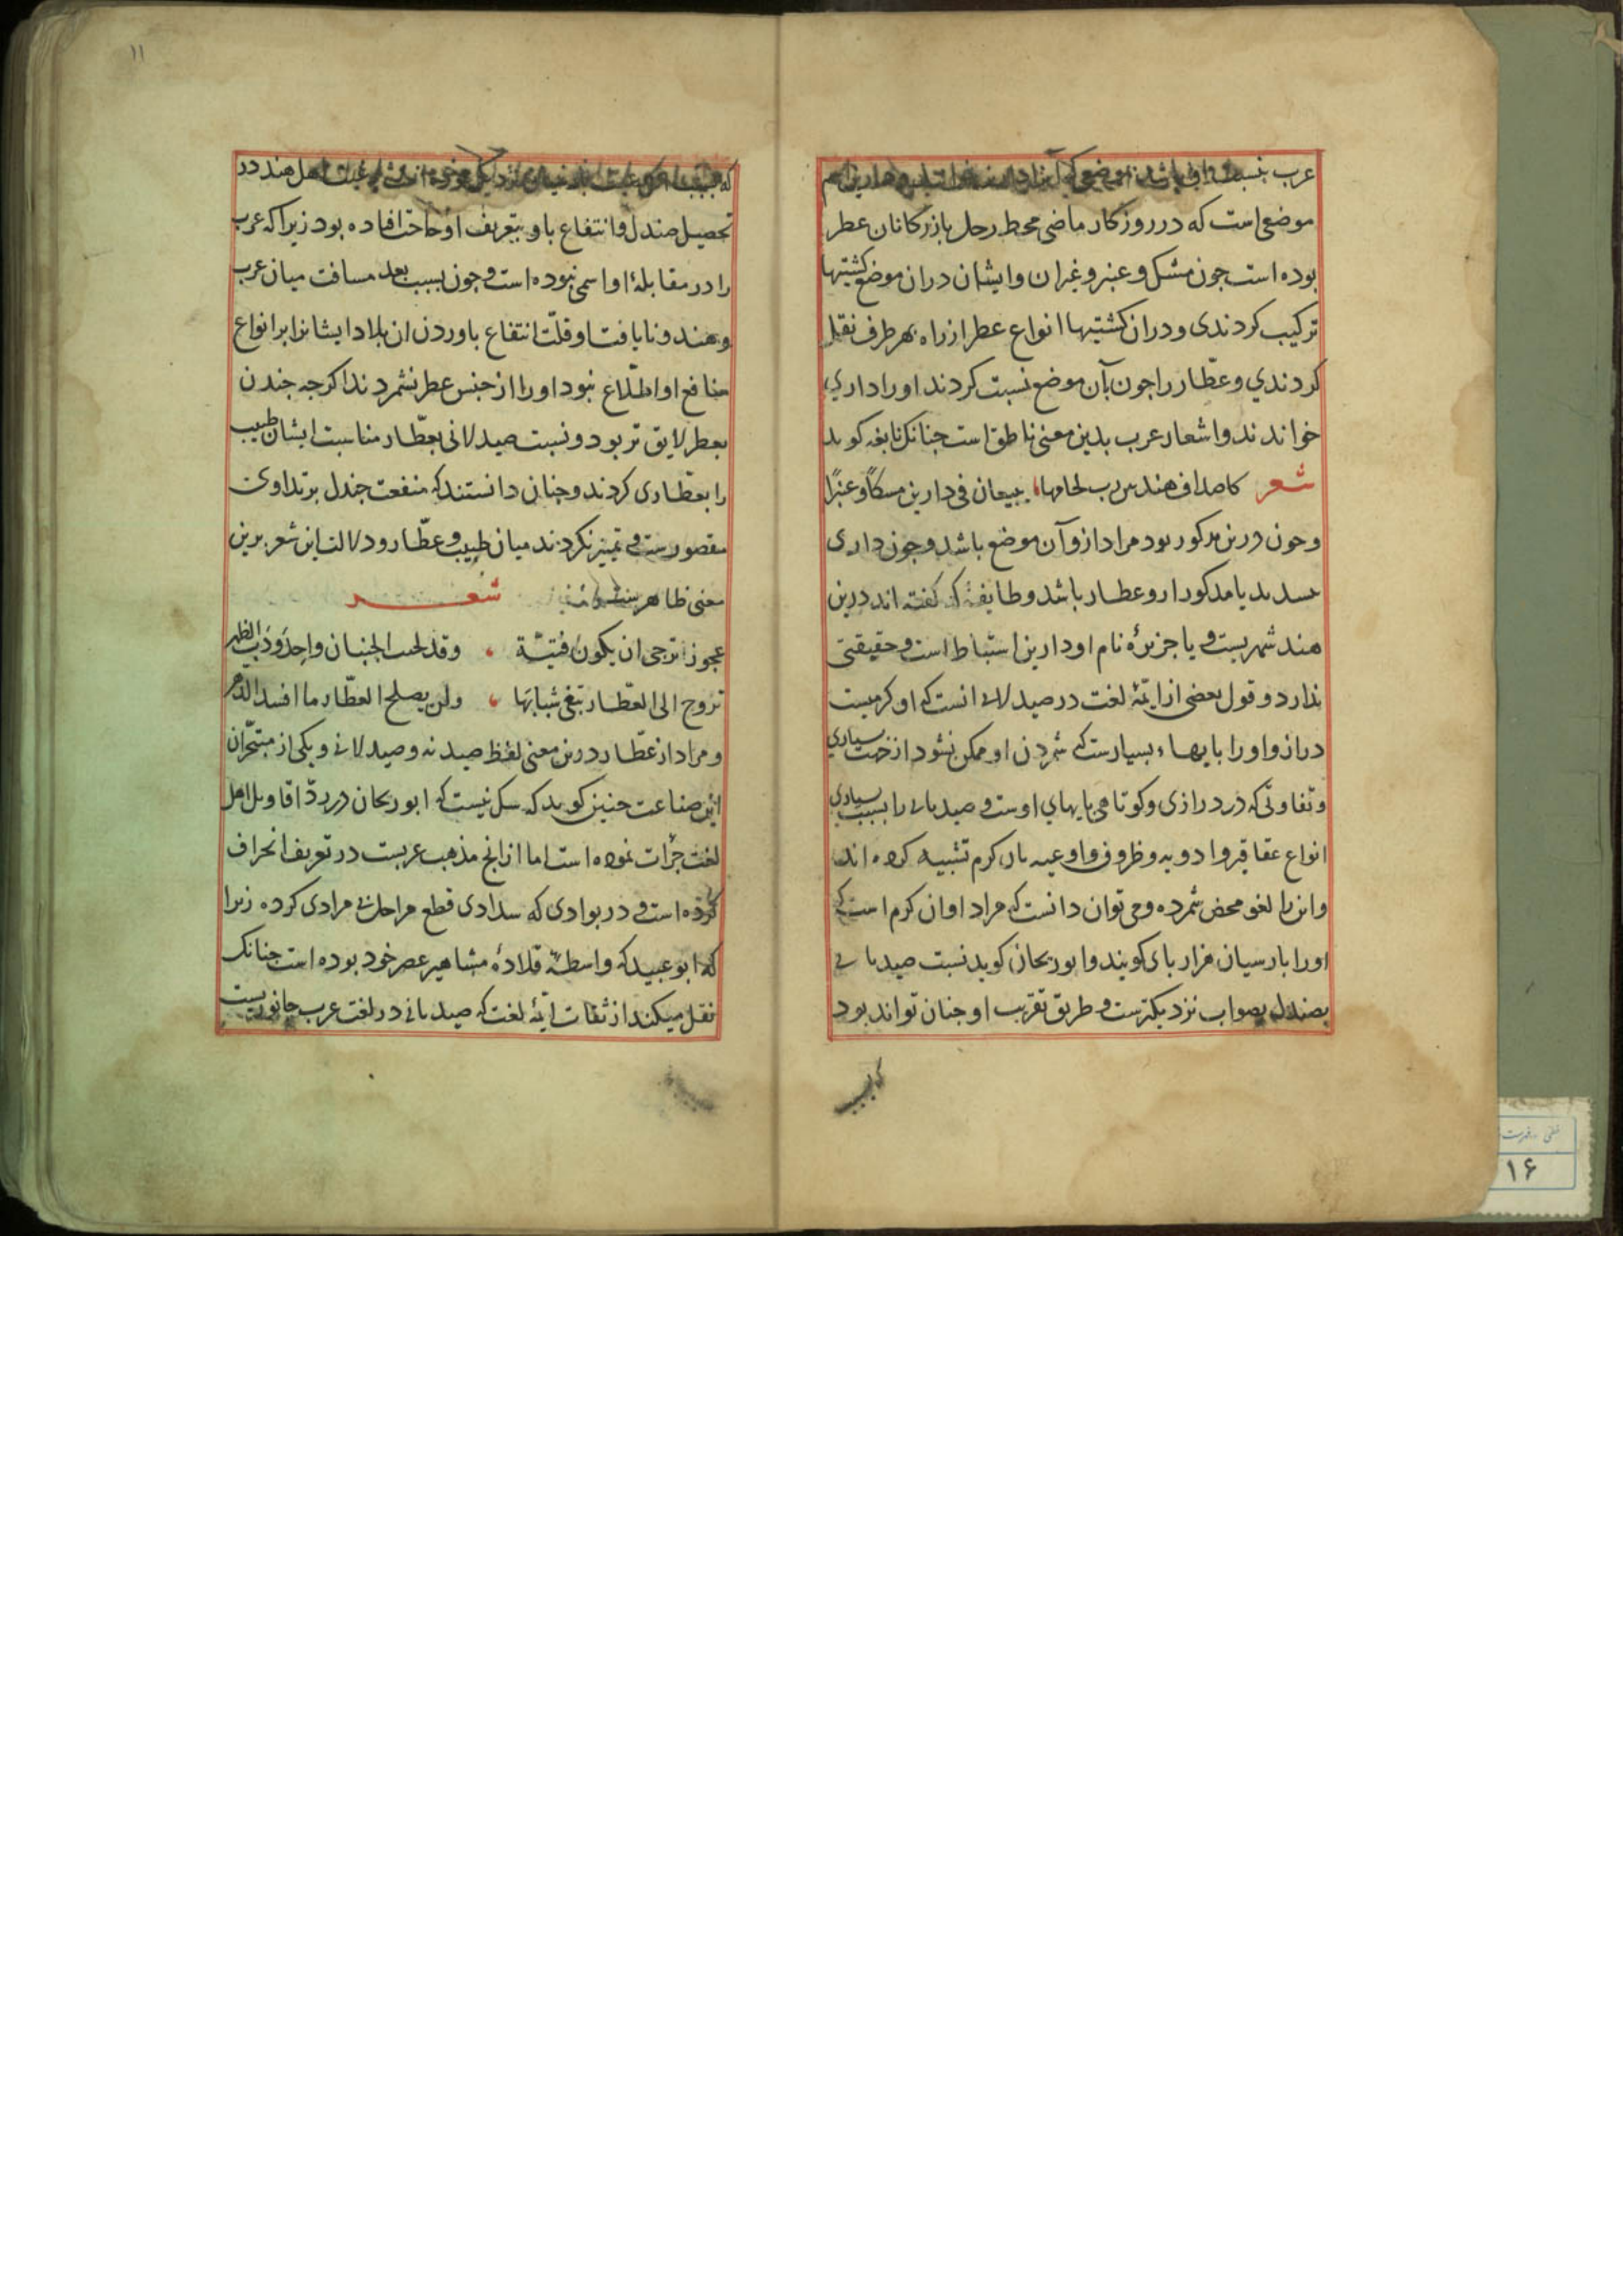 موضعی است که در روزکار ماضی محط رحل بازرکانان عطر
بوده است چون مشک و عنبر و غیران و ایشان دران موضع کشتیها
ترکیب کردندی و دران کشتیها انواع عطر از راه بهر طرف نقل
کردندی و عطّار را چون بآن موضع نسبت کردند او را داری
خواندند و اشعار عرب بدین معنی ناطق است جنانک نابغه کوید
شعر کاصداف هند لحامها یبیعان فی دارین مسکًا و عنبرًا
و چون دارین مذکور بود مراد ازو آن موضع باشد و چون داری
یا مذکور دارو عطار باشد و طایفهٔ که کفته اند درین
هند شهریست و یا جزیرهٔ نام او دارین استنباط است و حقیقتی
ندارد و قول بعضی از ایمّهٔ لغت در صیدلانی انست که او کرمیست
دراز و او را پایهاء بسیارست که شمردن او ممکن نشود از جهت بسیاری
و تفاوتی که در درازی و کوتاهی پایهای اوست و صیدنانی را بسبب بسیاری
انواع عقاقیر و ادویه و ظروف و اوعیه بان کرم تشبیه کرده اند
و این را لغو محض شمرده و می توان دانست که مراد او ان کرم است که
او را پارسیان هزار پای کویند و ابوریحان کوید نسبت صیدنانی
بصندل بصواب نزدیکترست و طریق تقریب او جنان تواند بود
که بسبب
۱۱
اهل هند در
تحصیل صندل و انتفاع باو بتعریف او حاجت افتاده بود زیرا که عرب
را در مقابلهٔ او اسمی نبوده است و جون بسبب بعد مسافت میان عرب
و هند و نایافت او قلّت انتفاع باوردن ان بلاد ایشانرا بر انواع
منافع او اطّلاع نبود او را از جنس عطر نشمردند اکرجه جندن
بعطر لایق تر بود و نسبت صیدلانی بعطّار مناسبت ایشان طبیب
را بعطّاری کردند و چنان دانستند که منفعت جندل بر تداوی
مقصورست و تمییز نکردند میان طبیب و عطّار و دلالت این شعر برین
معنی ظاهر
شعر
عجوز ترجی ان یکون فتیّة ، وقد لحب الجنبان واحدودب الظهر
تروح الی العطّار تبغی شبابها ، ولن یصلح العطّار ما افسد الدّهر
و مراد از عطّار درین معنی لفظ صیدنه و صیدلانی و یکی از متبحّران
این صناعت جنین کوید که شک نیست که ابوریحان در ردّ اقاویل اهل
لغت جرأت نموده است اما از انج مذهب عربست در تعریف انحراف
کرده است و در بوادی که قطع مراحل مرادی کرده زیرا
که ابو عبید که واسطهٔ قلادهٔ مشاهیر عصر خود بوده است جنانک
نقل میکند از ثقات ایمّهٔ لغت که صیدنانی در لغت عرب جانوریست
۱۶